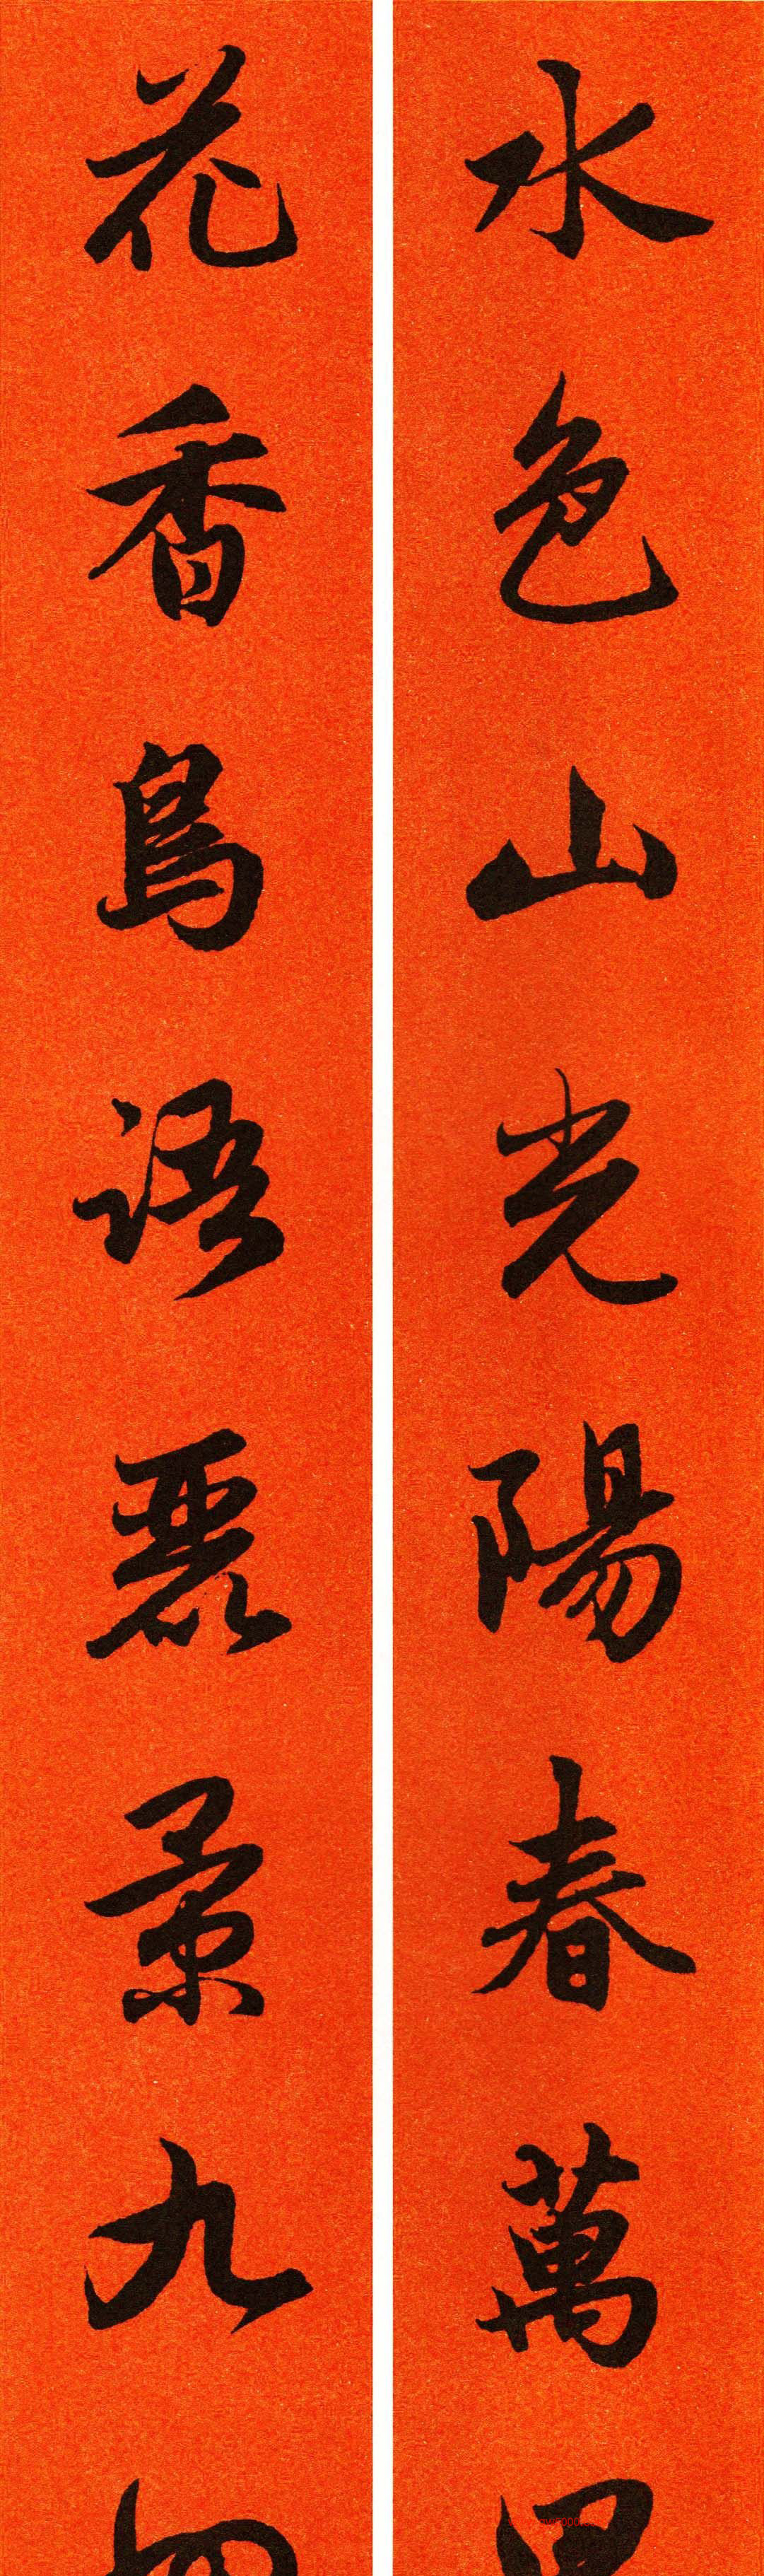 水色山光陽春萬里
花香鳥語麗景九